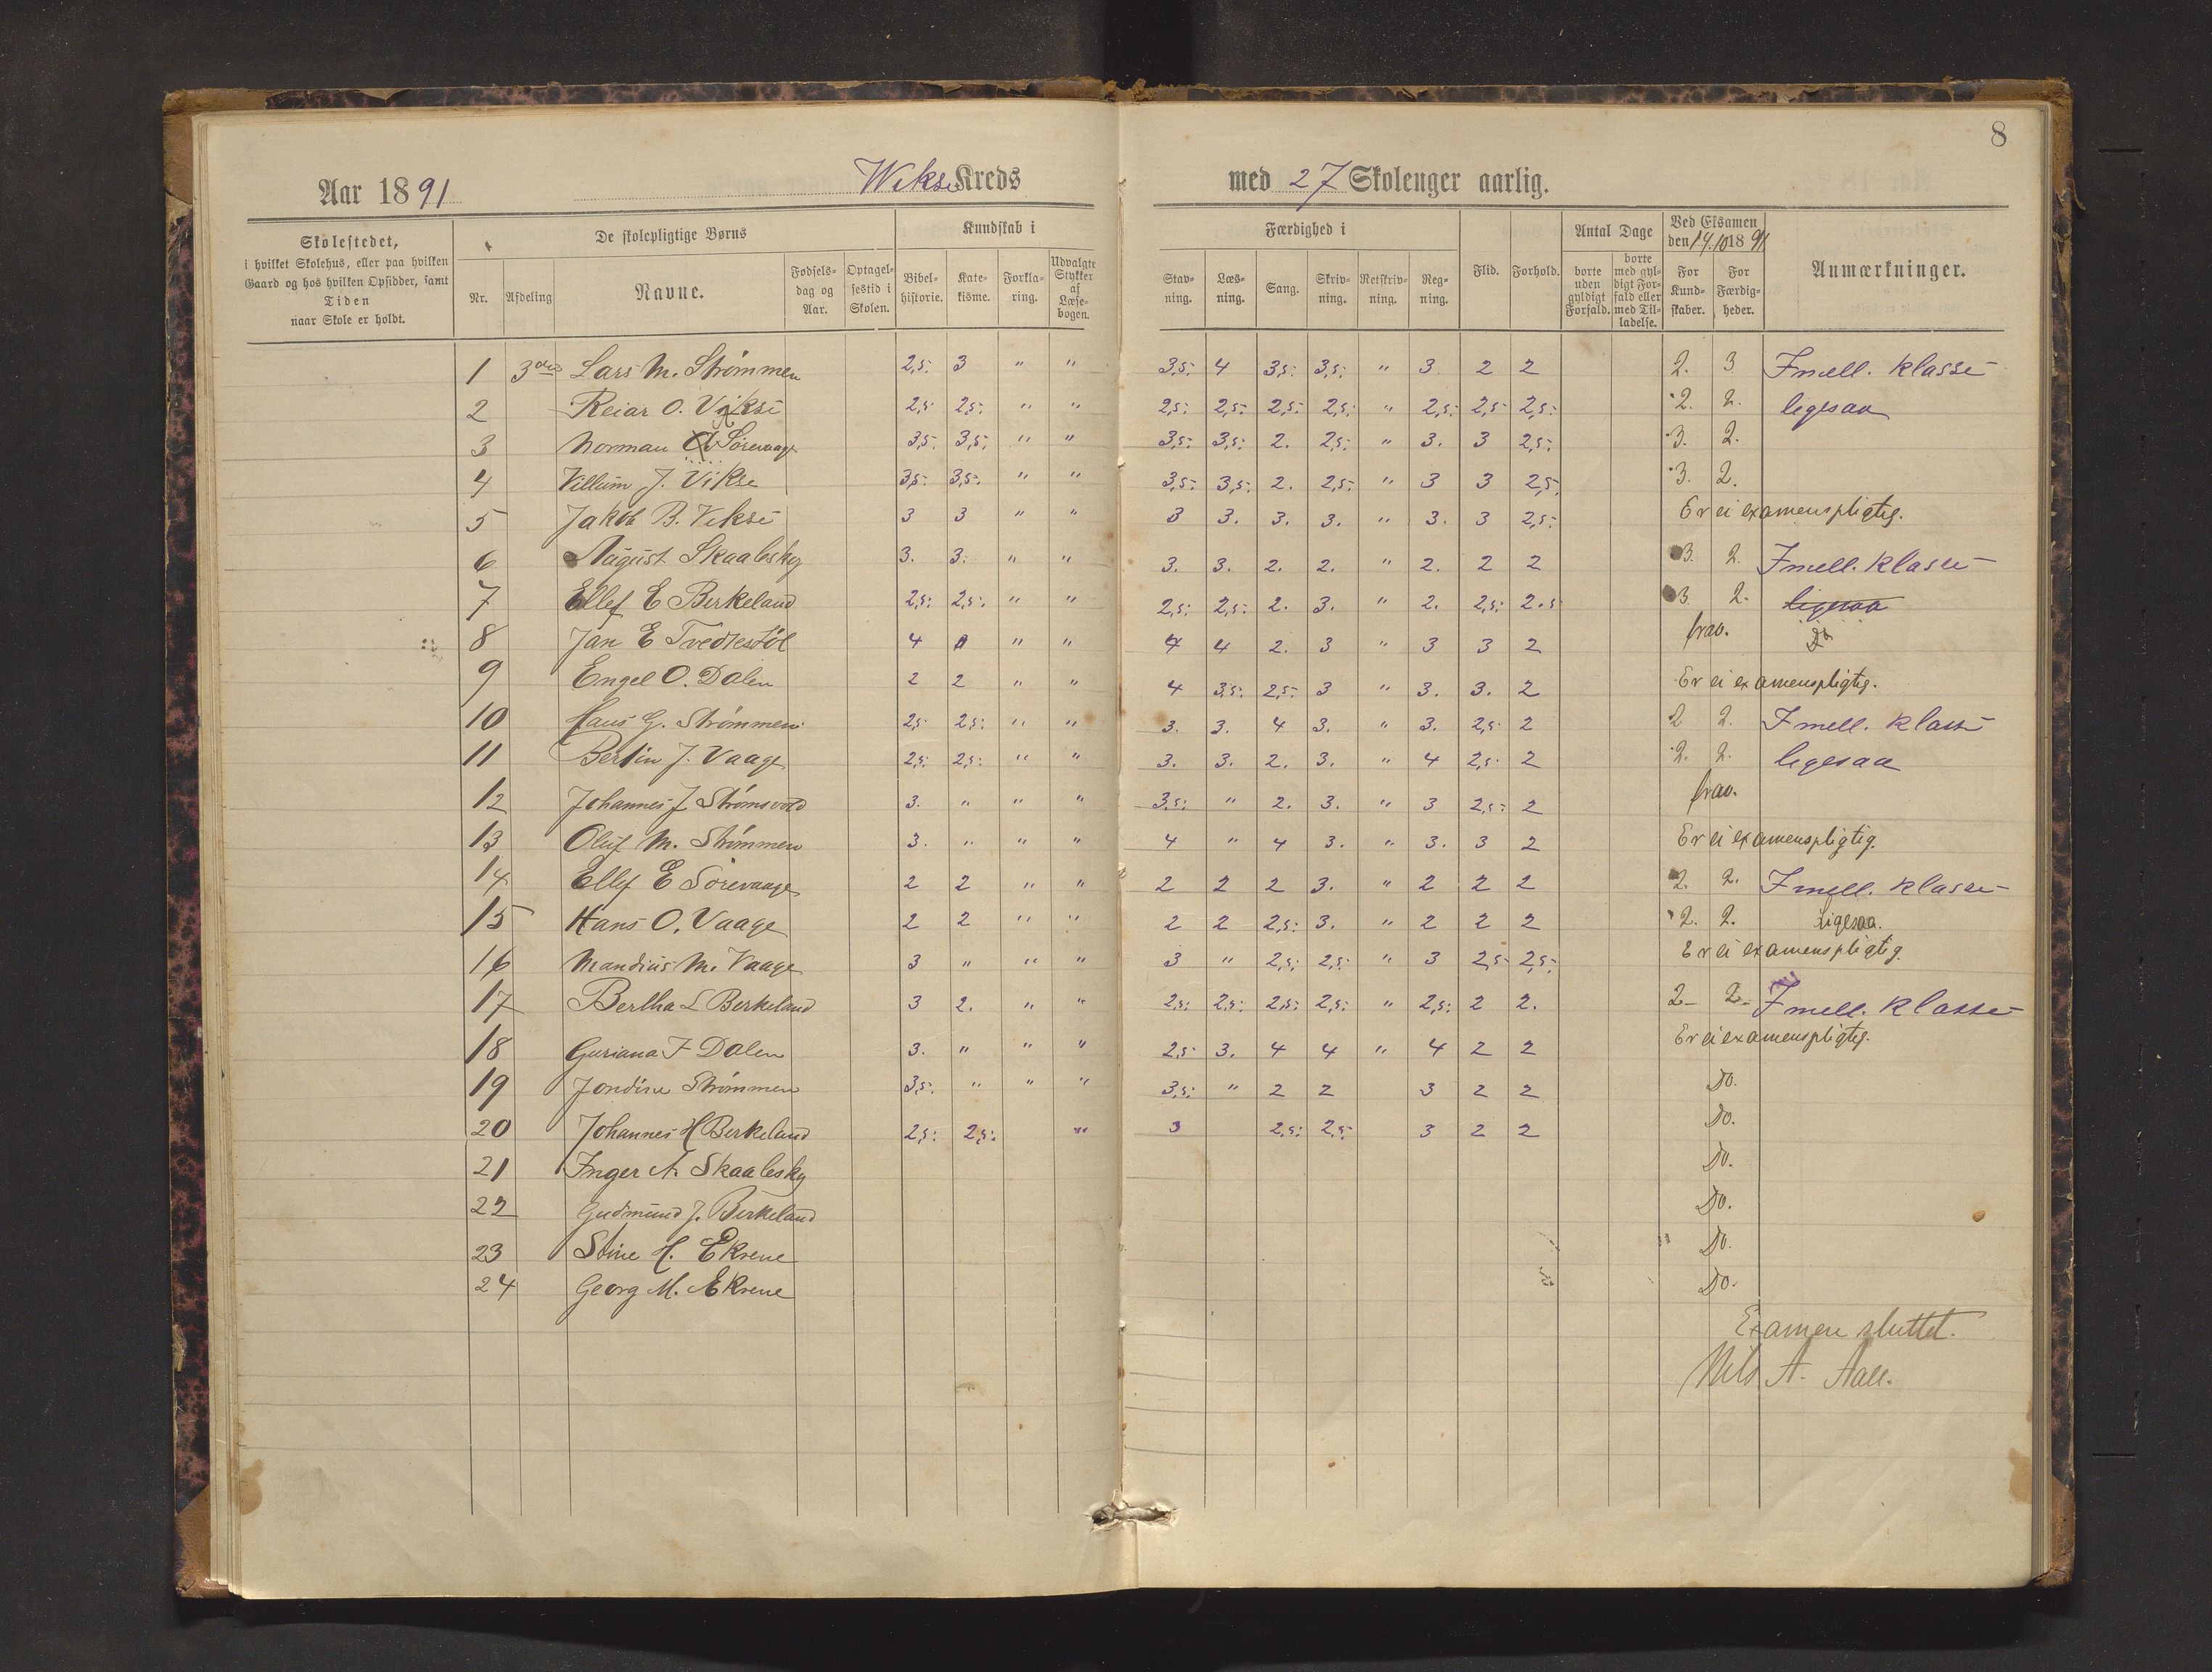 8
Aar 1891 Wikse Kreds med 27 Skoleuger aarlig.
Skolestedet, i hvilket Skolehus, eller paa hvilken Gaard og hos hvilken Opsidder, samt Tiden naar Skole er holdt.
De skolepligtige Børns
Nr. Afdeling Navne. Fødselsdag og Aar. Optagelsestid i Skolen.
Kundskab i
Bibelhistorie. Katekisme. Forklaring. Udvalgte Stykker af Læsebogen.
Færdighed i
Stavning. Læsning. Sang. Skrivning. Retskrivning. Regning.
Flid. Forhold.
Antal Dage
borte uden gyldigt Forfald. borte med gyldigt Forfald eller med Tilladelse.
Ved Eksamen den 14.10 1891
For Kundskaber. For Færdigheder.
Anmærkninger.
1 3die Lars M. Strømmen 2,5. 3 " " 3,5. 4 3,5. 3,5. " 3 2 2 2. 3 I mell. klasse
2 Reiar O. Vikse 2,5 2,5. " " 2,5. 2,5. 2,5. 2,5. " 2,5. 2,5 2,5. 2. 2. ligesaa
3 Norman Sørevaage 3,5. 3,5. " " 3,5. 3,5. 2. 2,5. " 3. 3 2,5. 3. 2.
4 Villum J. Vikse 3,5. 3,5. " " 3,5. 3,5. 2. 2,5. " 3 3 2,5. 3. 2.
5 Jakob B. Vikse 3 3 " " 3 3. 3. 3. " 3. 3 2,5. Er ei examenspligtig.
6 August Skaalesky 3. 3. " " 3. 3. 2. 2. " 2. 2 2 3. 2. I mell. klasse
7 Ellef E Berkeland 2,5. 2,5. " " 2,5. 2,5. 2. 3. " 2. 2,5. 2.5 3. 2. ligesaa
8 Jan E Tvedtestøl 4 " " 4 4 2. 3 " 3 3 2 frav. Do
9 Engel O. Dalen 2 2 " " 4 3,5. 2,5. 3 " 3. 3. 2 Er ei examenspligtig.
10 Hans G. Strømmen 2,5 2,5. " " 3. 3. 4 3. " 3. 2,5 2 2 2. I mell. klasse
11 Bertin J. Vaage 2,5. 2,5. " " 3. 3. 2. 3. " 4 2,5. 2 2. 2. ligesaa
12 Johannes J Strømsvold 3. " " " 3,5. " 2. 3. " 3 2,5. 2 frav.
13 Oluf M. Strømmen 3. " " " 4 " 4 3. " 3. 3 2 Er ei examenspligtig.
14 Ellef E Sørevaage 2 2 " " 2 2 2 3. " 2 2 2 2. 2. I mell. klasse
15 Hans O. Vaage 2 2 " " 2 2 2,5. 3. " 2 2 2 2. 2. Ligesaa.
16 Mandius M. Vaage 3 " " " 3 " 2,5. 2,5. " 3 2,5 2,5. Er ei examenspligtig.
17 Bertha L Berkeland 3 2. " " 2,5. 2,5. 2,5. 2,5. " 2,5. 2 2. 2 2 I mell. klasse
18 Guriana J Dalen 3. " " " 2,5 3. 4 4 " 4 2 2 Er ei examenspligtig.
19 Jondine Strømmen 3,5. " " " 3,5. " 2 2 3 2 2 Do.
20 Johannes H Berkeland 2,5. 2,5. " 3 2,5. 2,5. 3 2 2 Do.
21 Inger A. Skaalesky Do.
22 Gudmund J. Berkeland Do.
23 Stine H. Ekrene Do.
24 Georg M. Ekrene Do.
Examen sluttet.
Nils A. Aall.